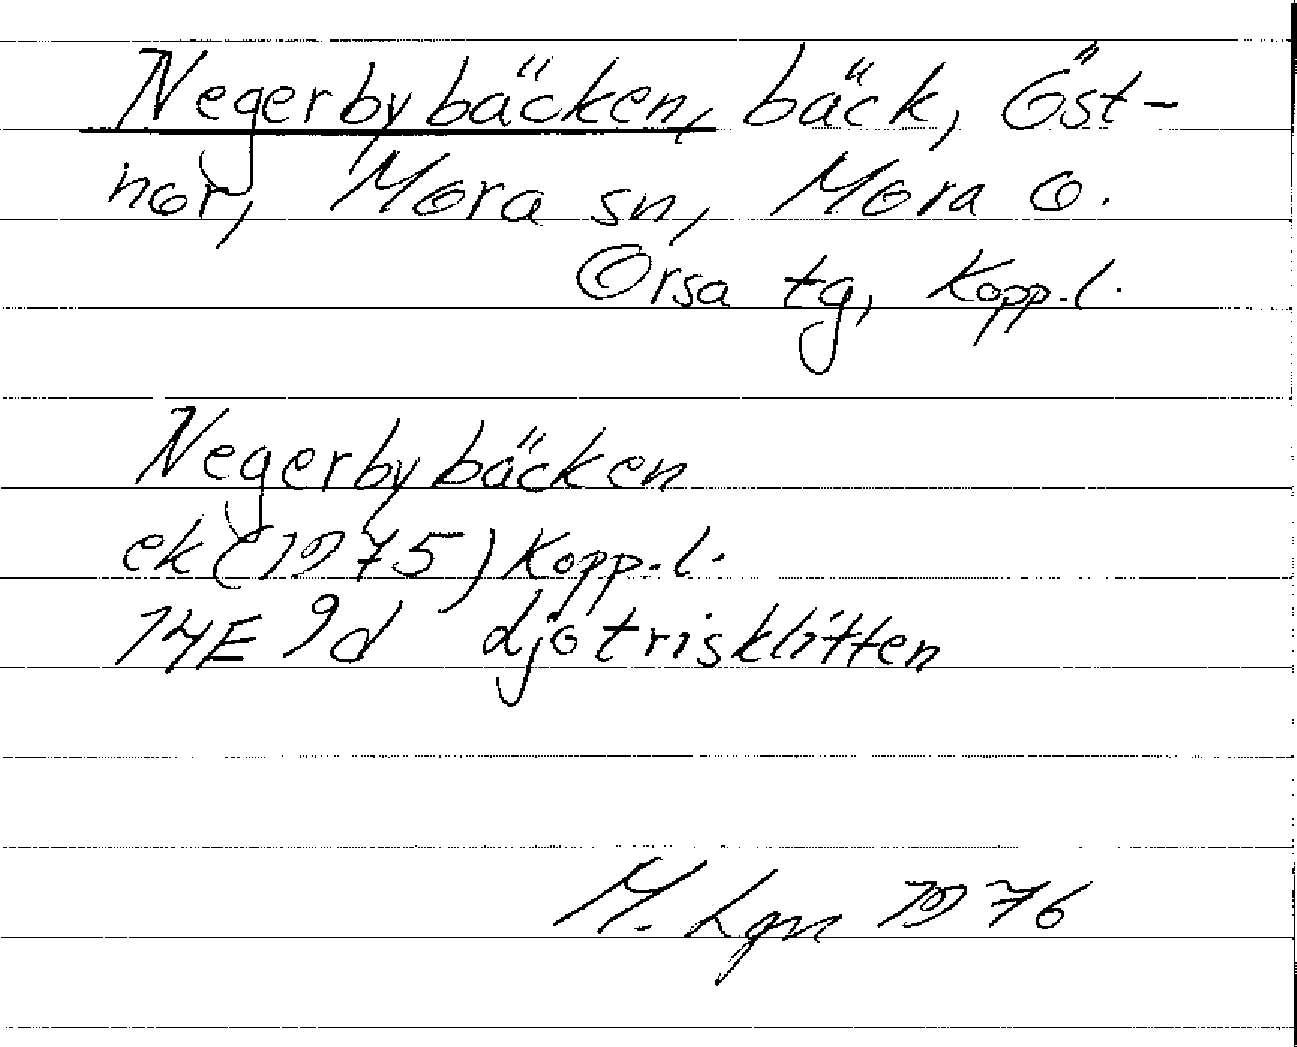 Negerbybäcken, bäck, Öst-
nor, Mora sn, Mora o.
Orsa tg, Kopp.l.
Negerbybäcken
ek (1975) Kopp.l.
14E 9d Djotrisklitten
M. Lgn 1976